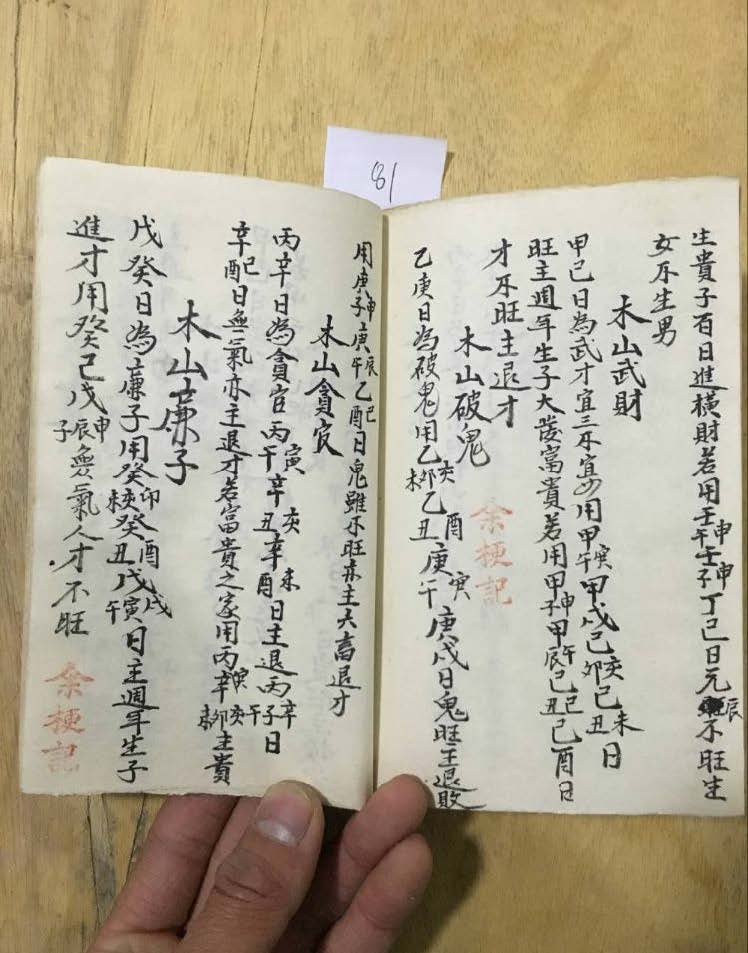 81
生貴子百日進橫財若用壬申午壬申子丁己日元辰不旺生
女不生男
木山武財
甲己日為武才宜三不宜少用甲寅午甲戌己亥卯己未丑日
旺主週年生子大發富貴若用甲申子甲午辰己巳丑己酉日
才不旺主退才
木山破鬼
乙庚日為破鬼用乙亥卯未乙酉丑庚寅午庚戌日鬼旺主退敗
用庚申子庚辰午乙巳酉日鬼雖不旺亦主六畜退才
木山貪官
丙辛日為貪官丙寅午辛亥丑辛未酉日主退丙子辛日
辛巳酉日無氣亦主退才若富貴之家用丙寅午辛亥卯未主貴
木山廉子
戊癸日為廉子用癸卯亥未癸酉丑戊戌寅午日主週年生子
進才用癸己戊申辰子無氣人才不旺
余梗記
余梗記